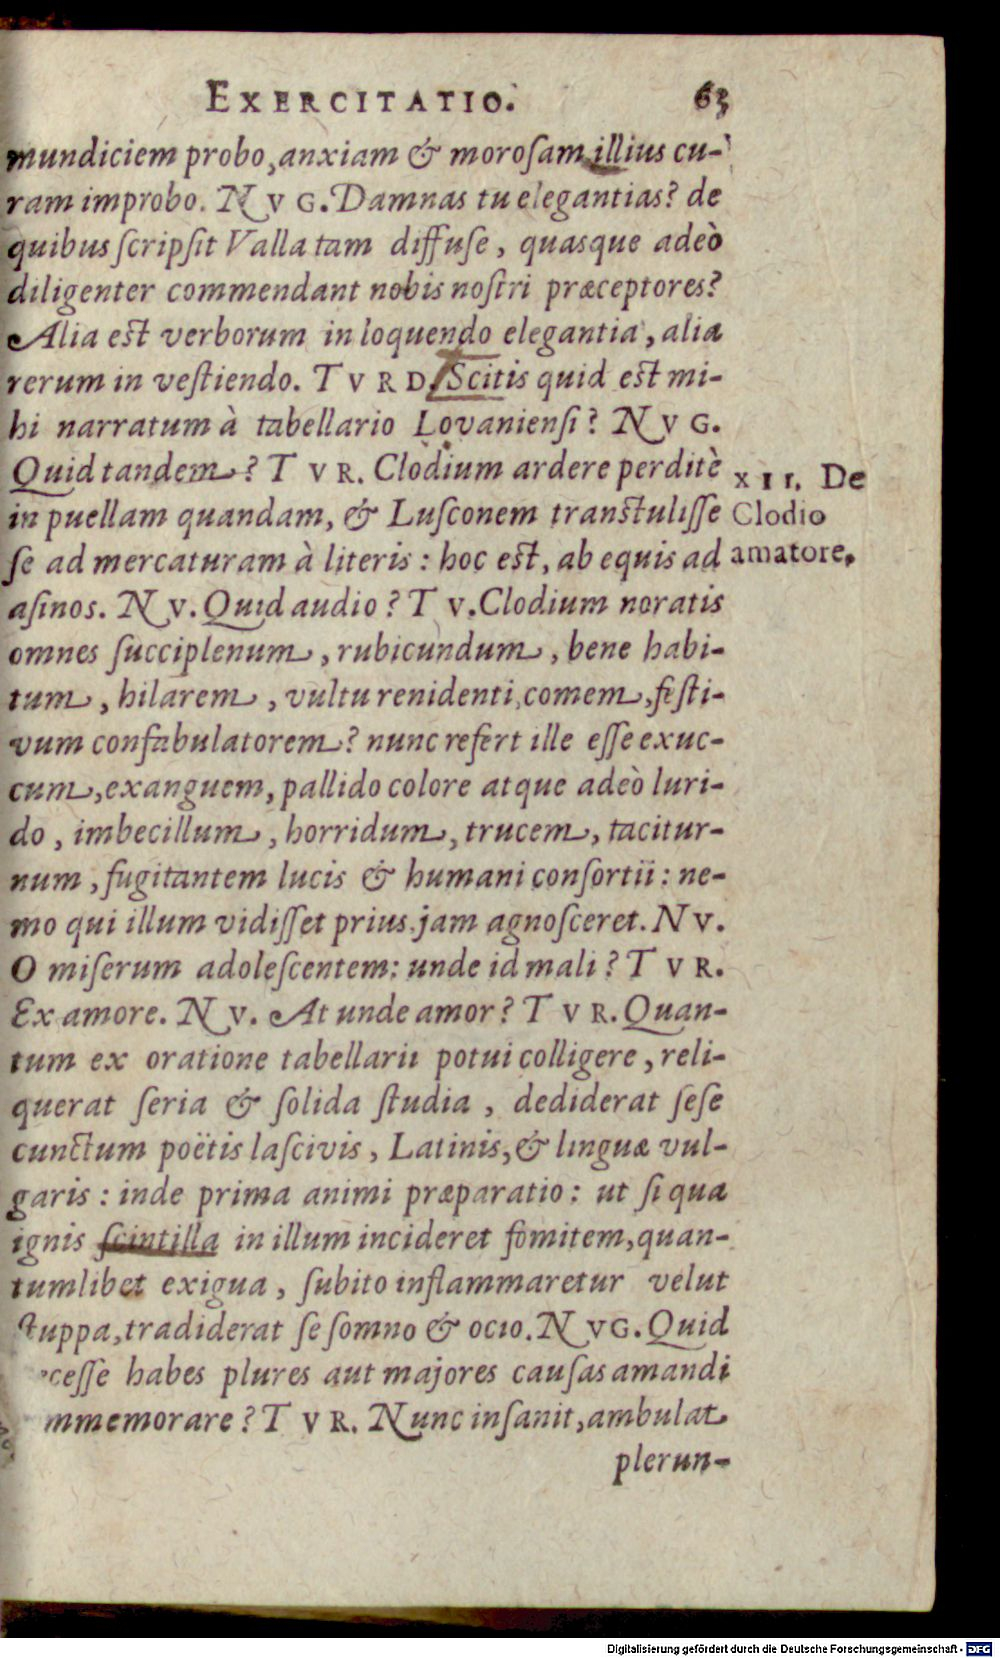 EXERCITATIO. 63
mundiciem probo, anxiam & morosam illius cu-
ram improbo. NVG. Damnas tu elegantias? de
quibus scripsit Valla tam diffuse, quasque adeò
diligenter commendant nobis nostri præceptores?
Alia est verborum in loquendo elegantia, alia
rerum in vestiendo. TVRD. Scitis quid est mi-
hi narratum à tabellario Lovaniensi? NVG.
Quid tandem? TVR. Clodium ardere perditè
in puellam quandam, & Lusconem transtulisse
se ad mercaturam à literis: hoc est, ab equis ad
asinos. NV. Quid audio? TV. Clodium noratis
omnes succiplenum, rubicundum, bene habi-
tum, hilarem, vultu renidenti, comem, festi-
vum confabulatorem? nunc refert ille esse exuc-
cum, exanguem, pallido colore atque adeò luri-
do, imbecillum, horridum, trucem, tacitur-
num, fugitantem lucis & humani consortii: ne-
mo qui illum vidisset prius jam agnosceret. NV.
O miserum adolescentem: unde id mali? TVR.
Ex amore. NV. At unde amor? TVR. Quan-
tum ex oratione tabellarii potui colligere, reli-
querat seria & solida studia, dediderat sese
cunctum poëtis lascivis, Latinis, & linguæ vul-
garis: inde prima animi præparatio: ut si qua
ignis scintilla in illum incideret fomitem, quan-
tumlibet exigua, subito inflammaretur velut
stuppa, tradiderat se somno & ocio. NVG. Quid
cesse habes plures aut majores causas amandi
mmemorare? TVR. Nunc insanit, ambulat
plerun-
XII. De
Clodio
amatore.
Digitalisierung gefördert durch die Deutsche Forschungsgemeinschaft - DFG